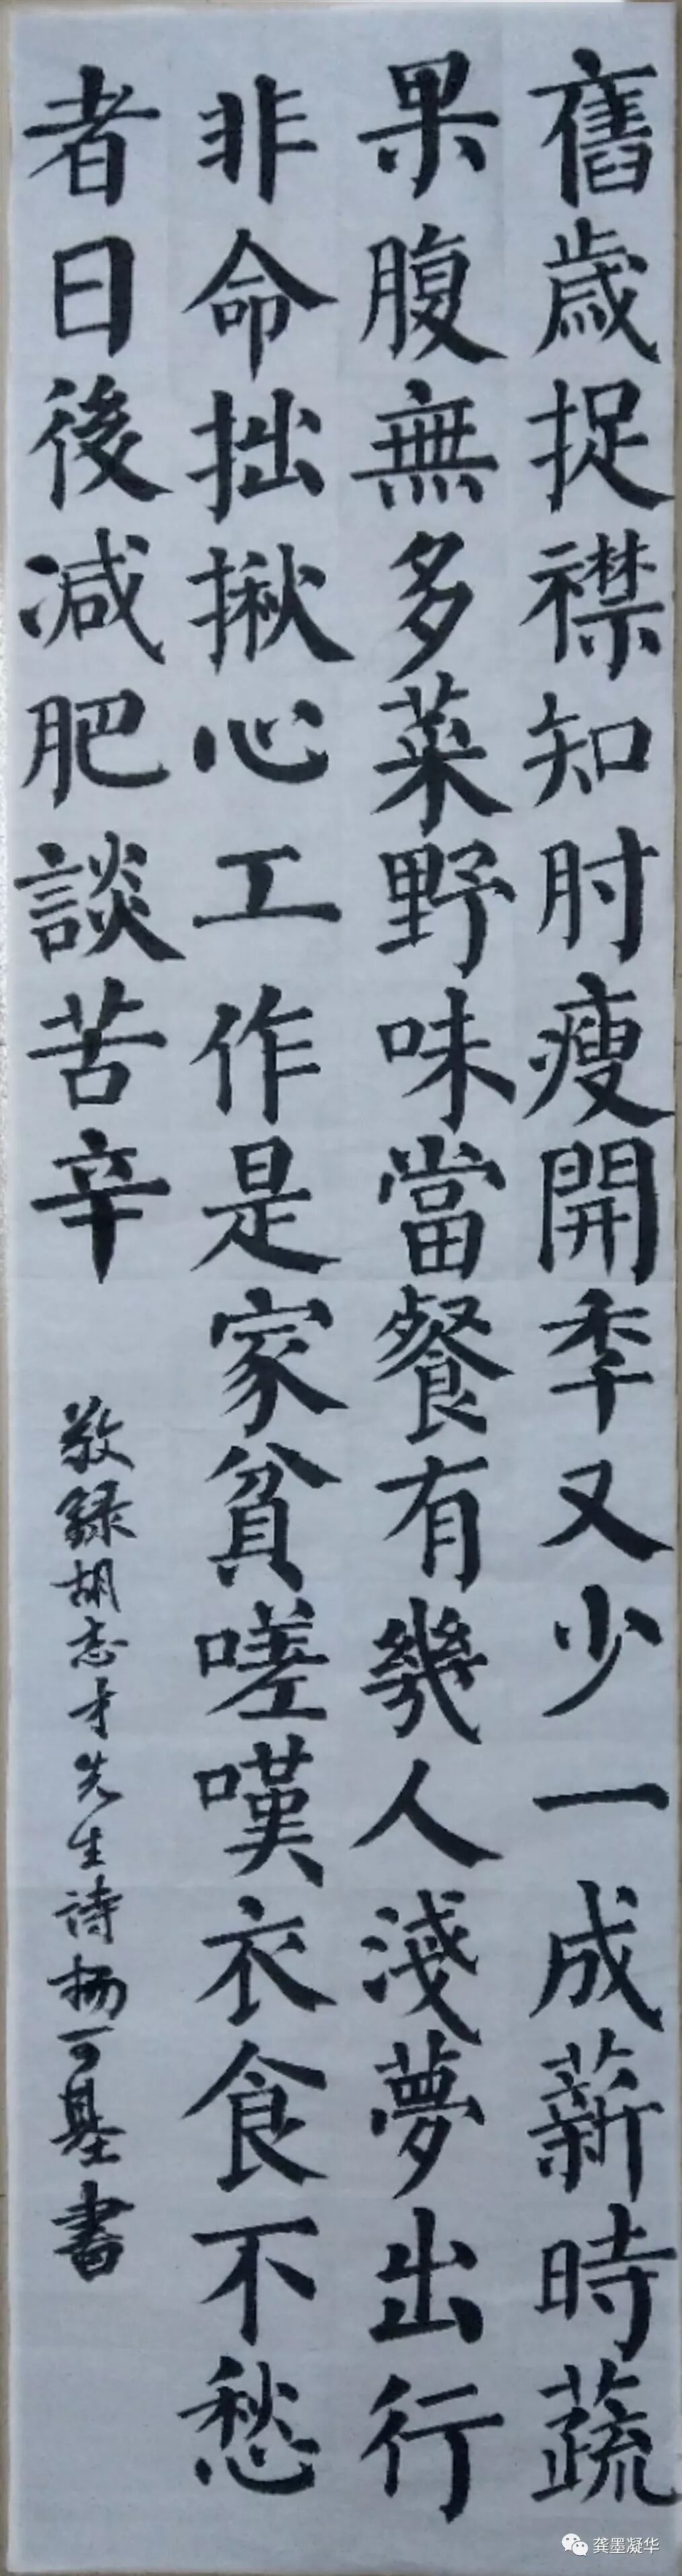 舊歲捉襟知肘瘦開季又少一成薪時蔬
果腹無多菜野味當餐有幾人淺夢出行
非命拙揪心工作是家貧嗟嘆衣食不愁
者日後減肥談苦辛
敬録胡志才先生詩楊可基書
龚墨凝华